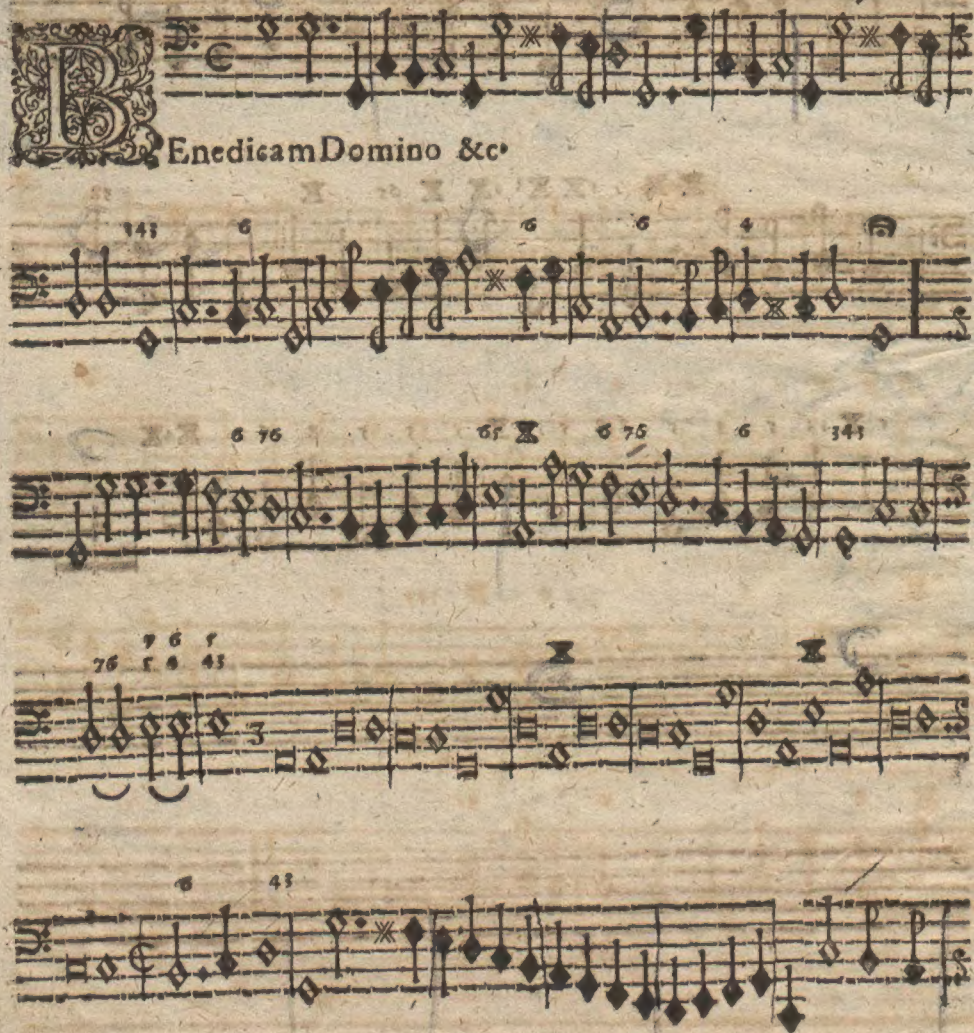 BEnedicam Domino &c.
343 6 6 6 4
6 76 65 6 76 6 343
7 6 5
76 5 4 43
3
6 43